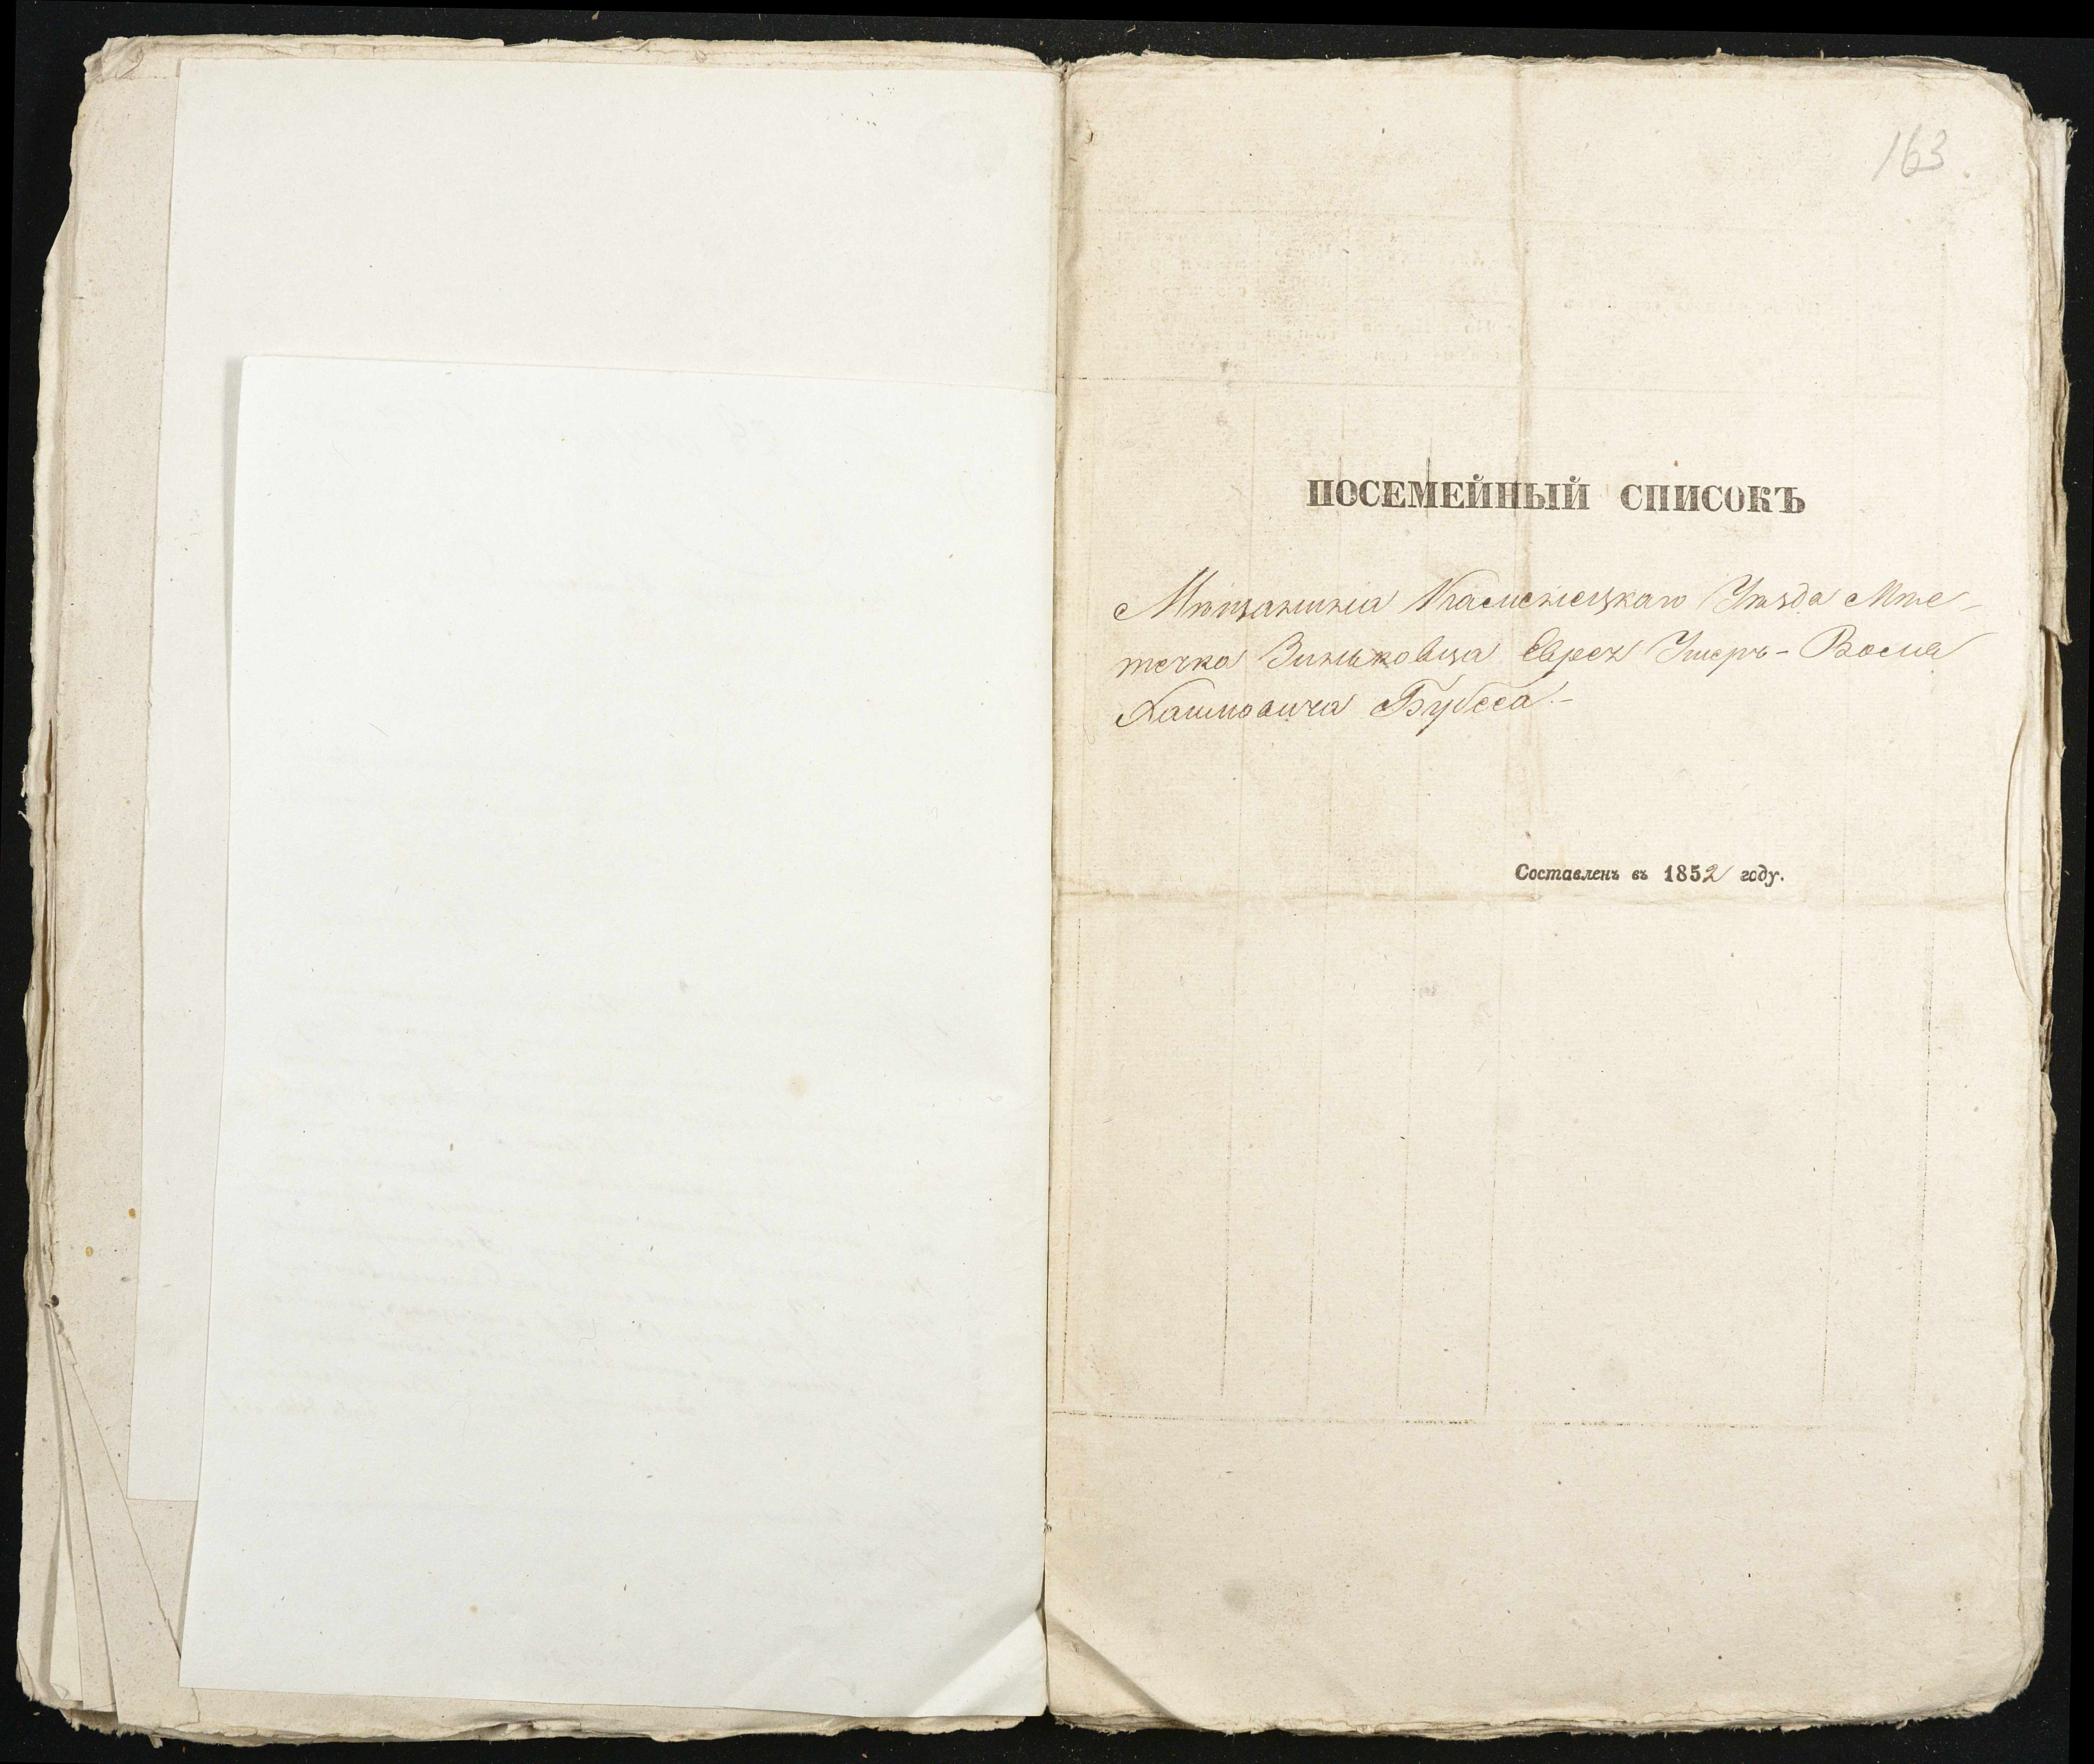 163.
ПОСЕМЕЙНЫЙ СПИСОКЪ
Мѣщанина Каменецкаго Уѣзда Мѣс-
течка Зиньковца Еврея Ушеръ-
Хаимовича
Составленъ въ 1852 году.